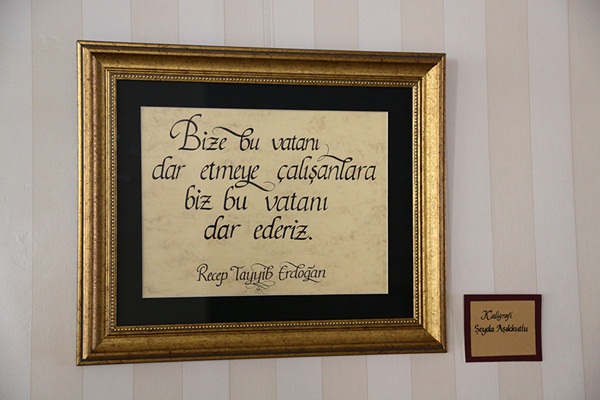 Bize bu vatanı
dar etmeye çalışanlara
biz bu vatanı
dar ederiz.
Recep Tayyib Erdoğan
Kaligrafi
Şeyda Aşıkkutlu